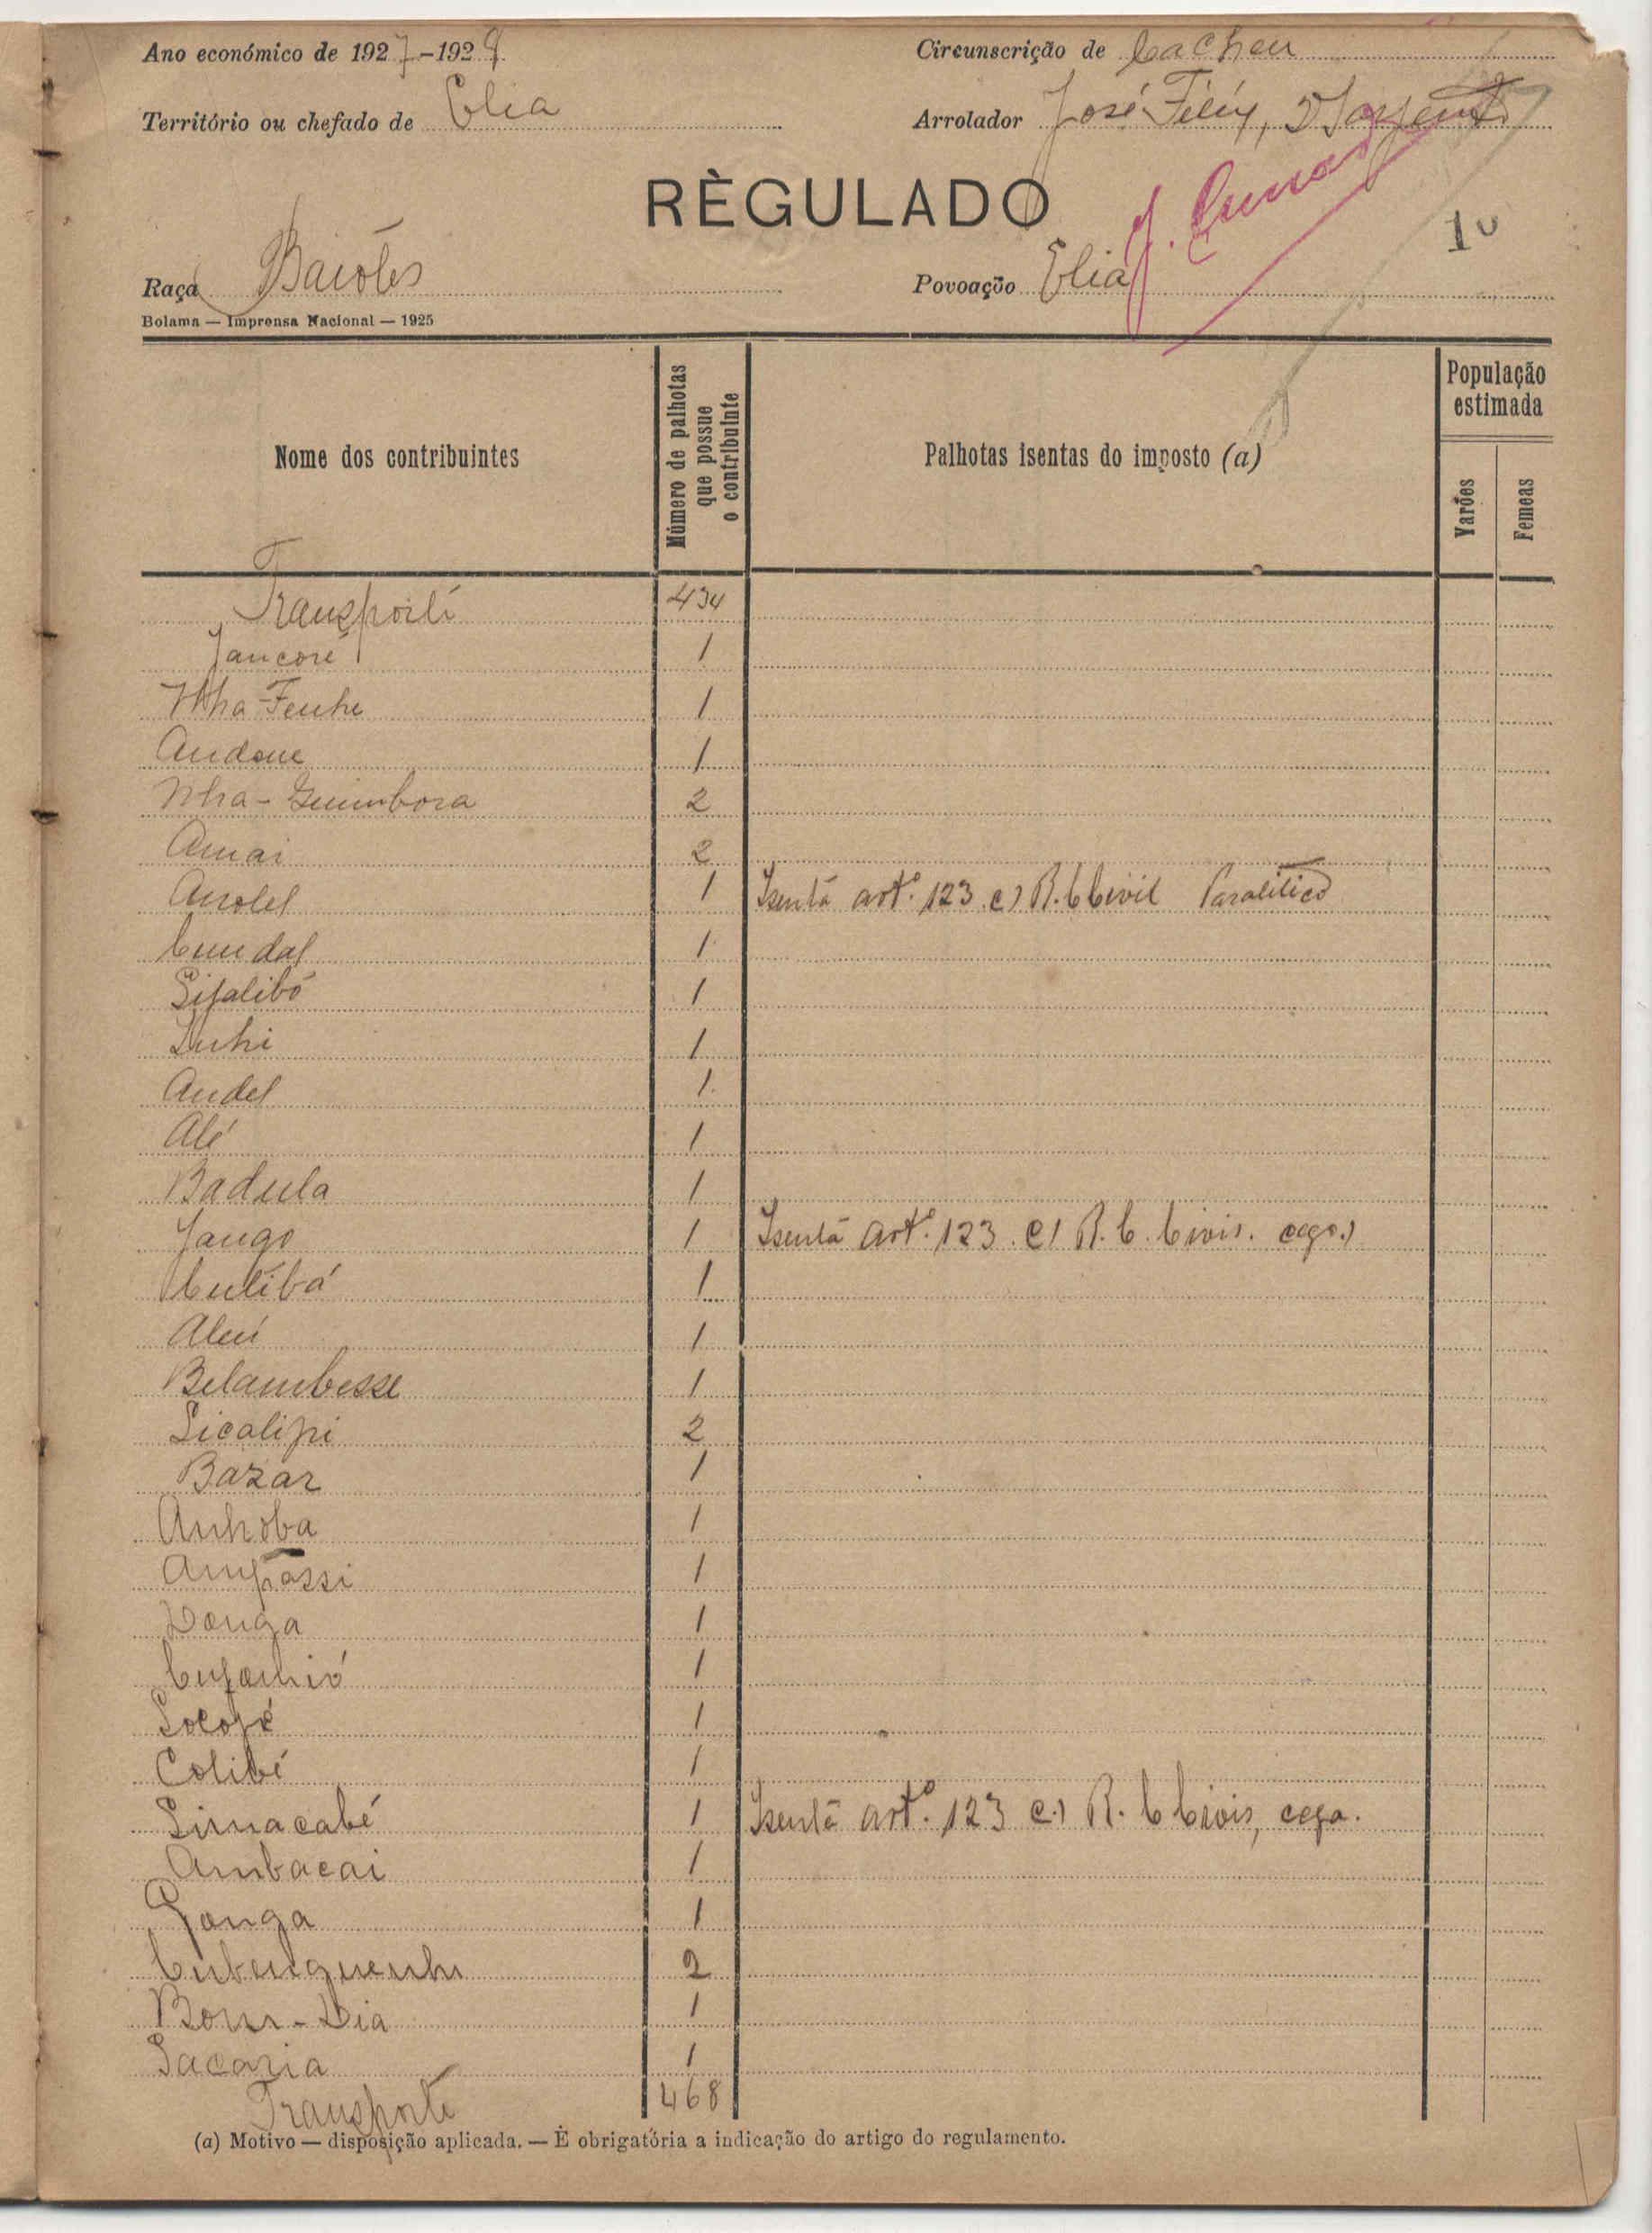 Ano económico de 1927-1928
Circunscrição de Cacheu
Território ou chefado de Elia
Arrolador José Féliy, 2º Sargento
RÈGULADO
10
Raça Baiótes
Povoação Elia
Bolama — Imprensa Nacional — 1925
Nome dos contribuintes
Número de palhotas que possue o contribuinte
Palhotas isentas do imposto (a)
População estimada
Varões
Femeas
Transporte 434
Jancoré 1
Nha-Fenhe 1
Andone 1
Nha-Guimbora 2
Amai 2
Anolel 1 Isenta artº. 123 c) R.C Civil Paralitico
Cundal 1
Sijalibó 1
Luhi 1
Andel 1
Alé 1
Badula 1
Jango 1 Isenta artº. 123 c) R. C. Civis. cego.)
Culibá 1
Aluí 1
Belambesse 1
Sicalipi 2
Bazar 1
Anhoba 1
Ampassi 1
Donga 1
1
1
Colibé 1
Simacabé 1 Isenta artº. 123 c.) R. C Civis, cega.
Ambacai 1
Ganga 1
2
Bom-Dia 1
Sacaria 1
Transporte 468
(a) Motivo — disposição aplicada. — É obrigatória a indicação do artigo do regulamento.